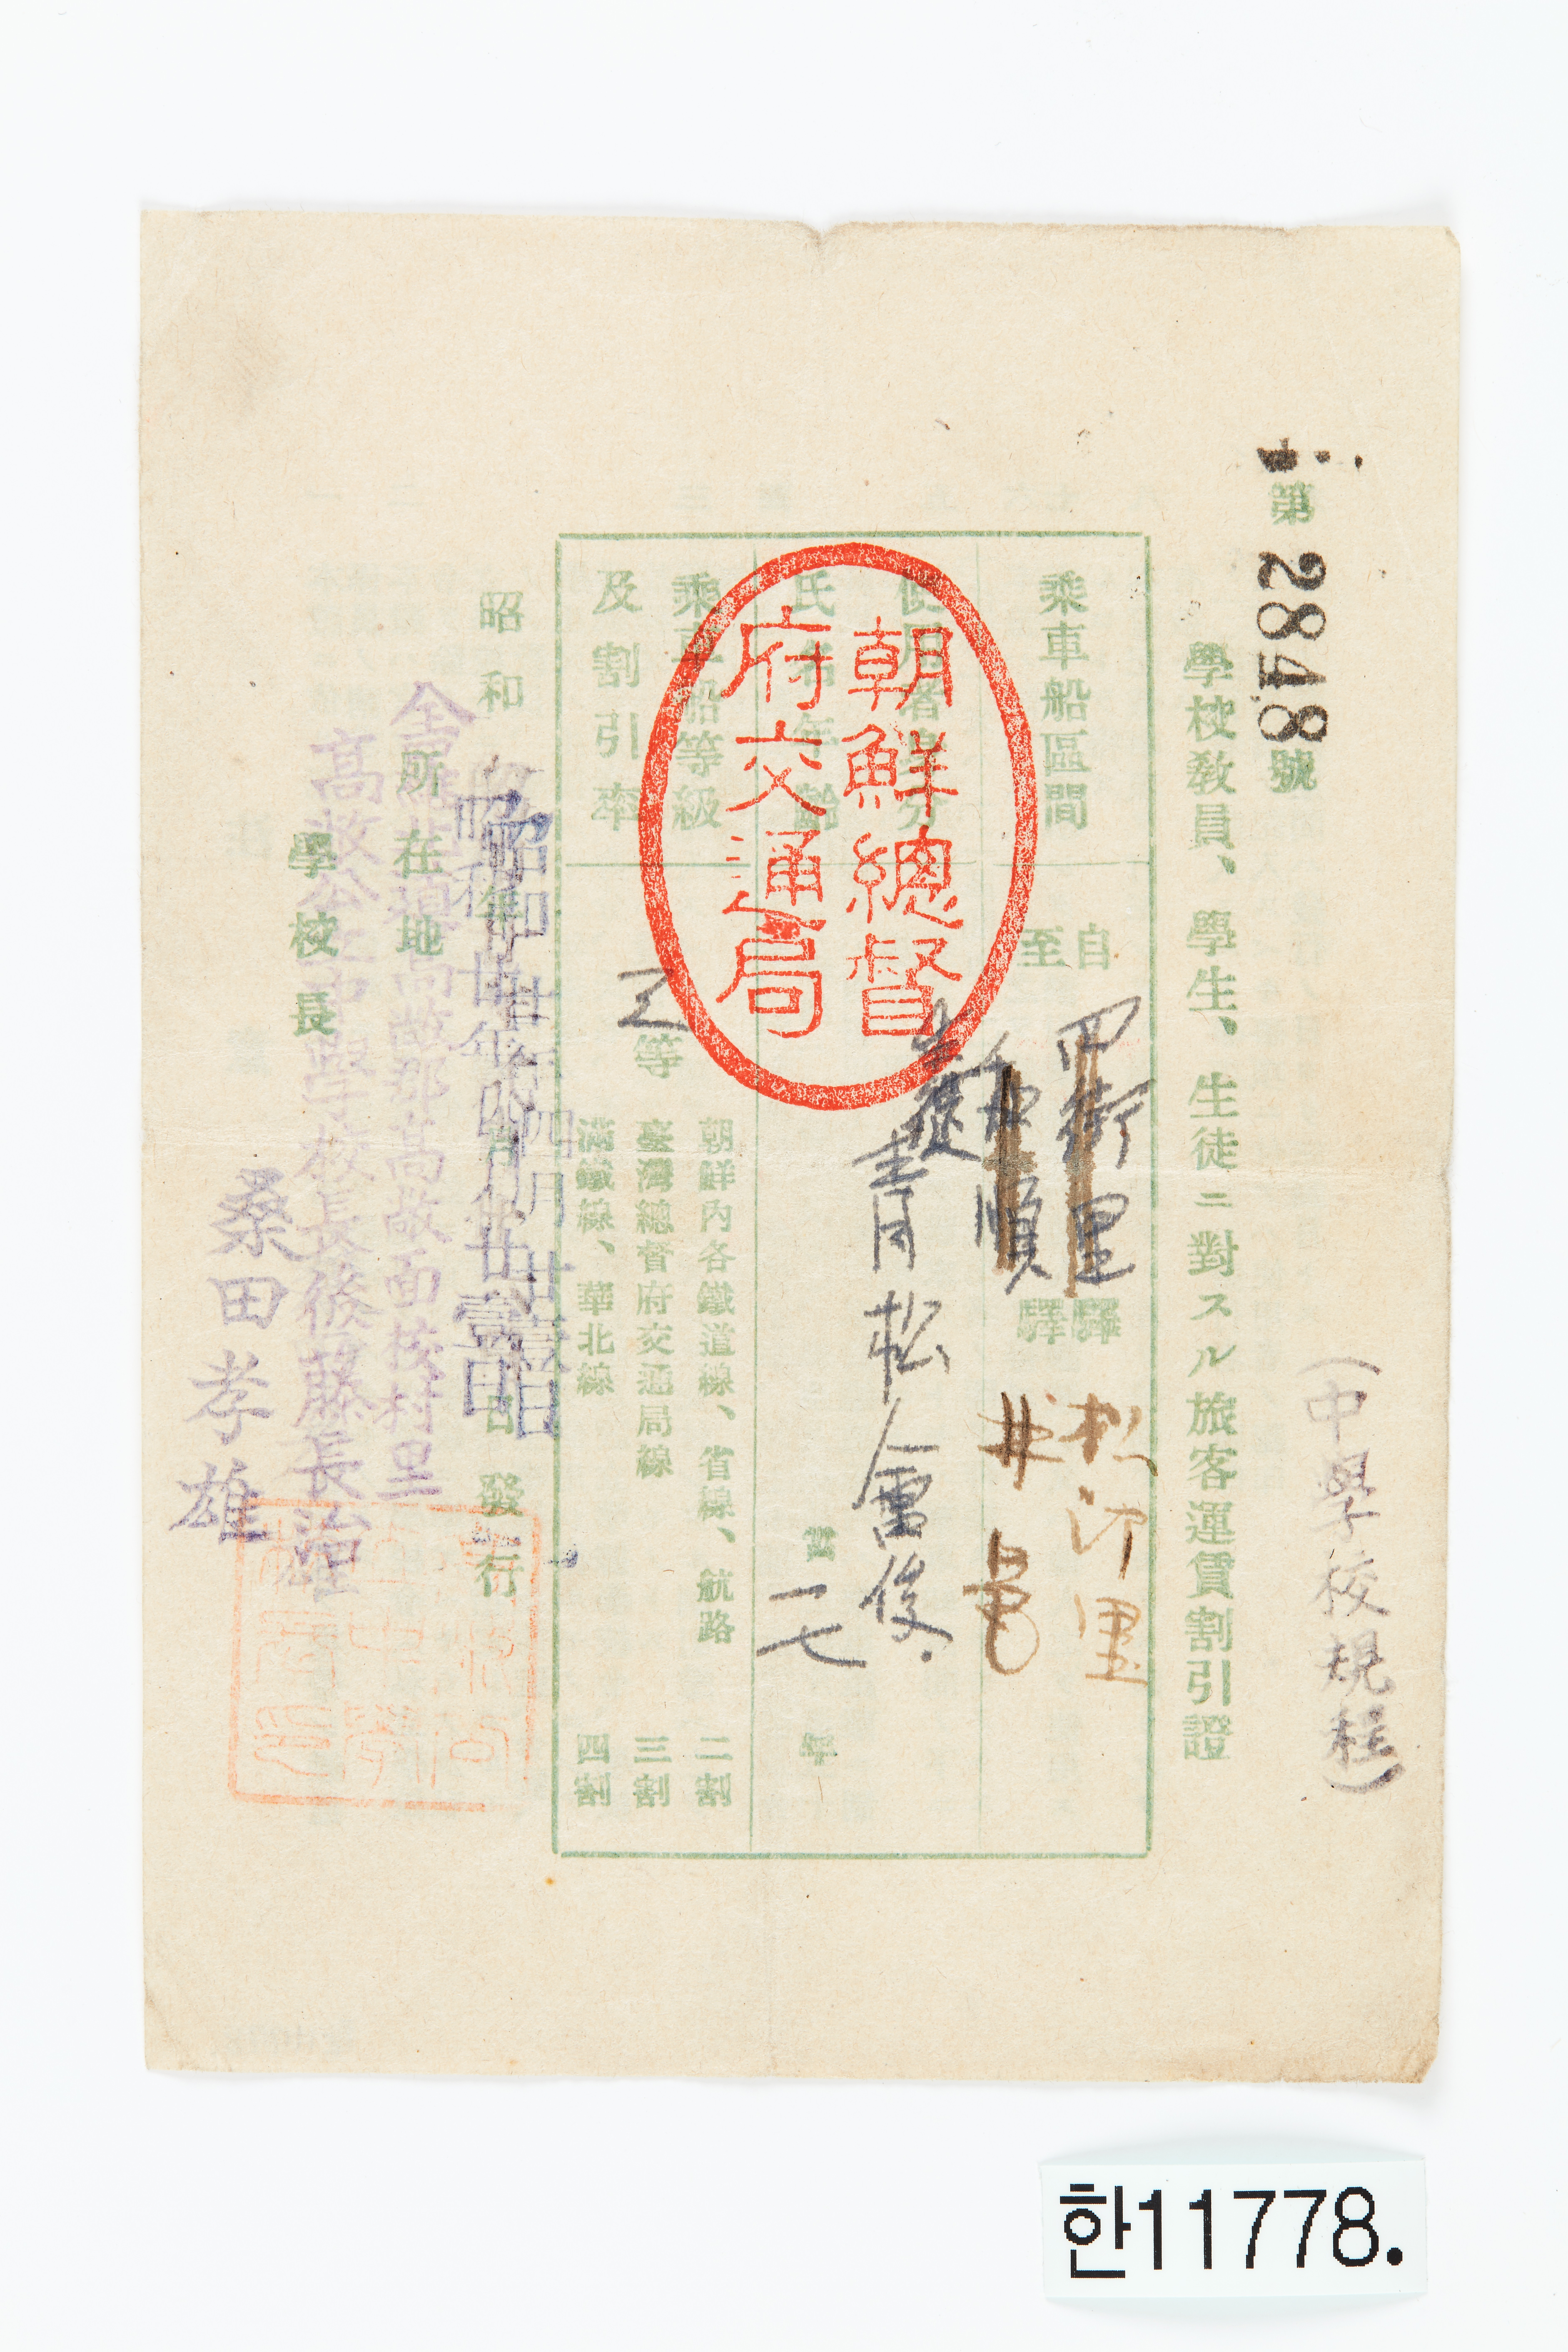 (中學校規程)
第2848號
學校敎員、學生、生徒ニ對スル旅客運賃割引證
乘車船區間
自 四街里 驛 松汀里
至 和順 驛 井邑
使用者身分
生徒
氏名年齡
靑松會俊
當 一七 年
朝鮮總督
府交通局
乘車船等級
及割引率
三等
朝鮮內各鐵道線、省線、航路 二割
臺灣總督府交通局線 三割
滿鐵線、華北線 四割
昭和 年 月 日發行
昭和廿年四月廿壹日
昭和廿年四月廿壹日
所在地
全羅北道高敞郡高敞面校村里
學校長
高敞公立中學校長後藤長治
桑田孝雄
한11778.